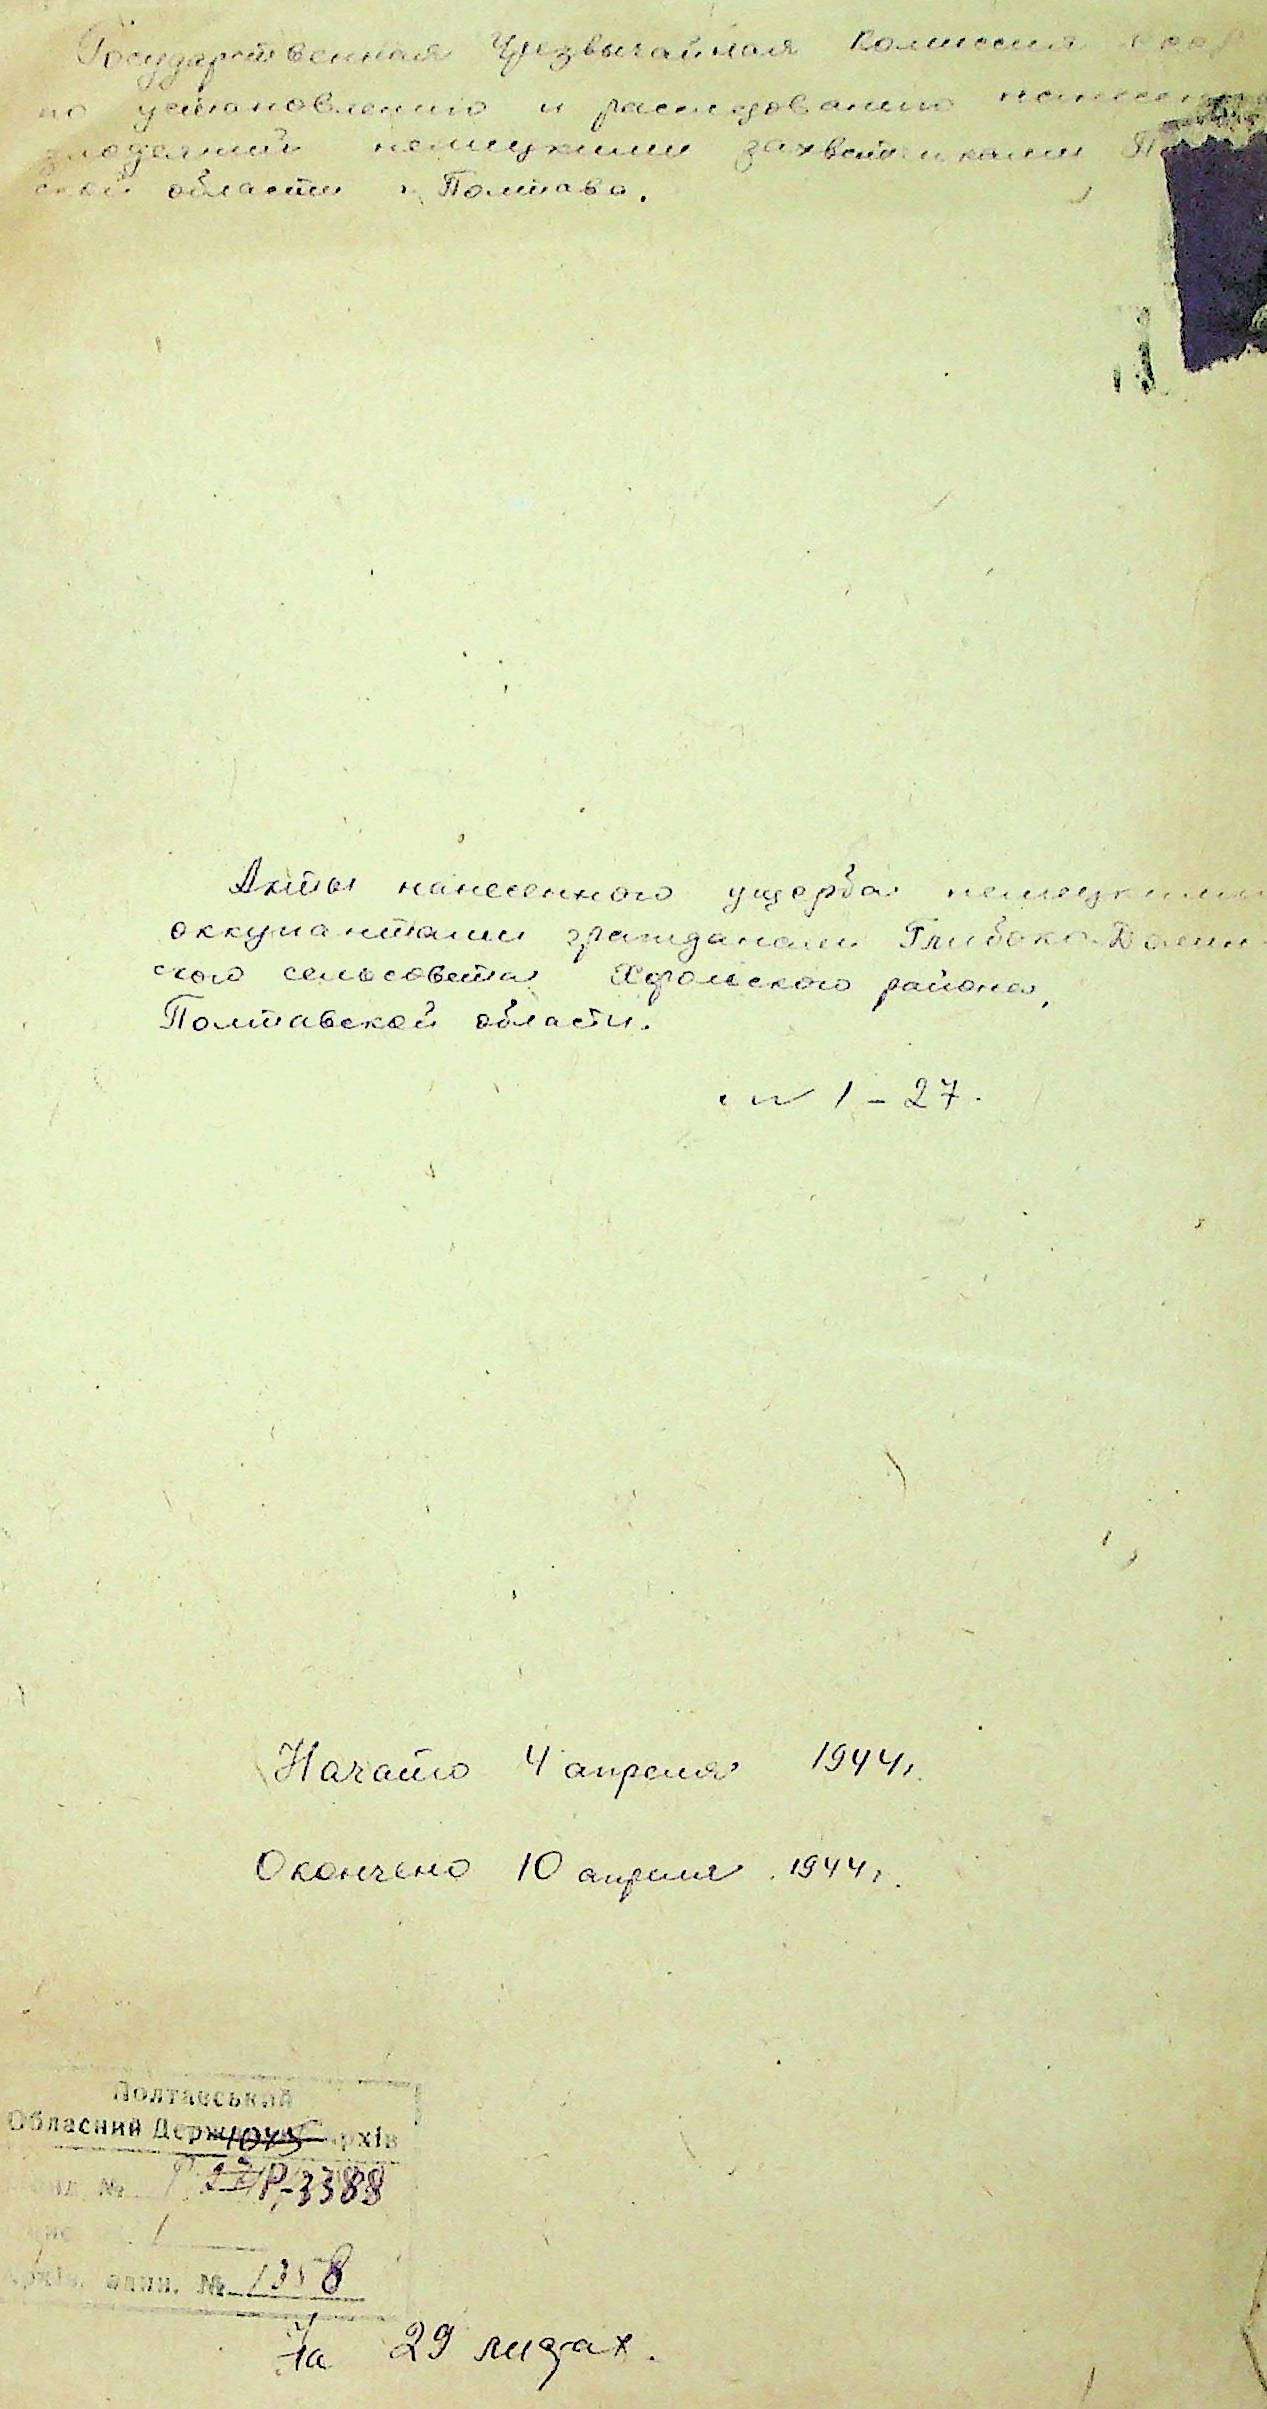 Государственная Чрезвычайная Комиссия
по установлению и расследованию
злодеяний немецкими захватчиками
ской области г. Полтава.
Акты нанесенного ущерба немецкими
оккупантами гражданам Глибоко-Долин-
ского сельсовета Хорольского района,
Полтавской области.
с № 1 – 27.
Начато 4 апреля 1944 г.
Окончено 10 апреля 1944 г.
Полтавський
Обласний Держ архів
1045
Фонд № Р-3388
1
Архів. один. № 1358
На 29 листах.